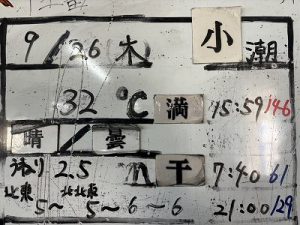 9/26(木) 小潮
32℃ 満 15:59 146
晴/曇
うねり 2.5m 干 7:40 61
北東 北北東
5〜 5〜6〜6 21:00 129